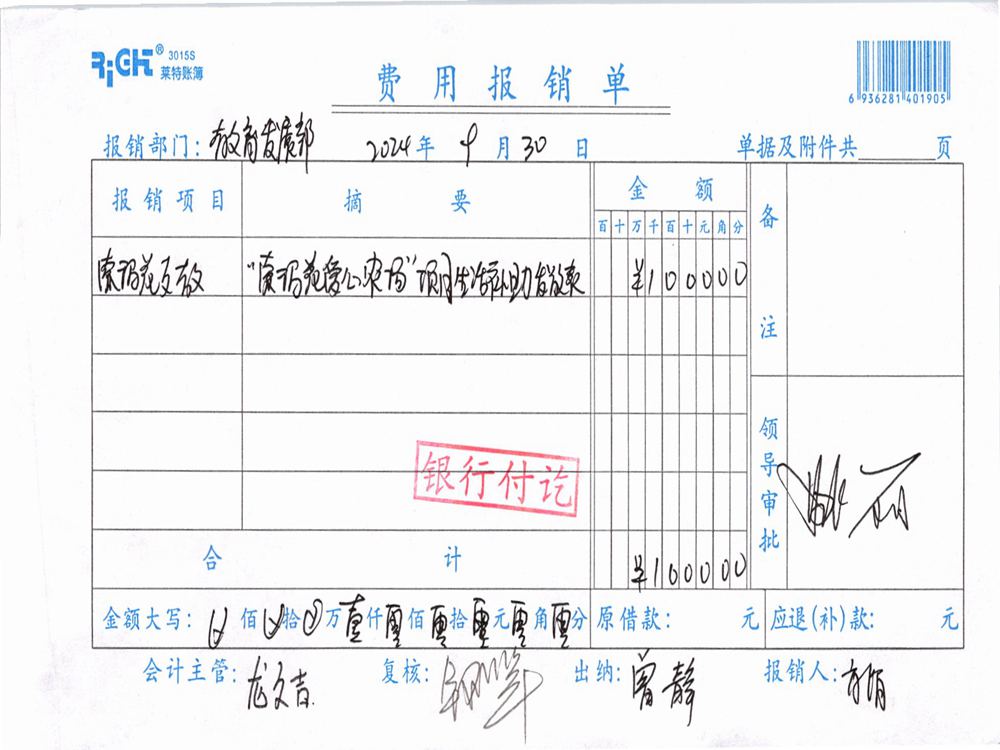 RiGHT® 3015S
莱特账簿
费用报销单
6 936281 401905
报销部门：教育发展部 2024年9月30日 单据及附件共 页
报销项目 摘要 金额 备注
百十万千百十元角分
索玛花支教 "索玛花爱心农场"项目生活补助发放表 ¥100000
银行付讫
领导审批
合计 ¥100000
金额大写： 佰 拾 万壹仟零佰零拾零元零角零分 原借款： 元 应退(补)款： 元
会计主管：龙文吉 复核： 出纳：曾静 报销人：